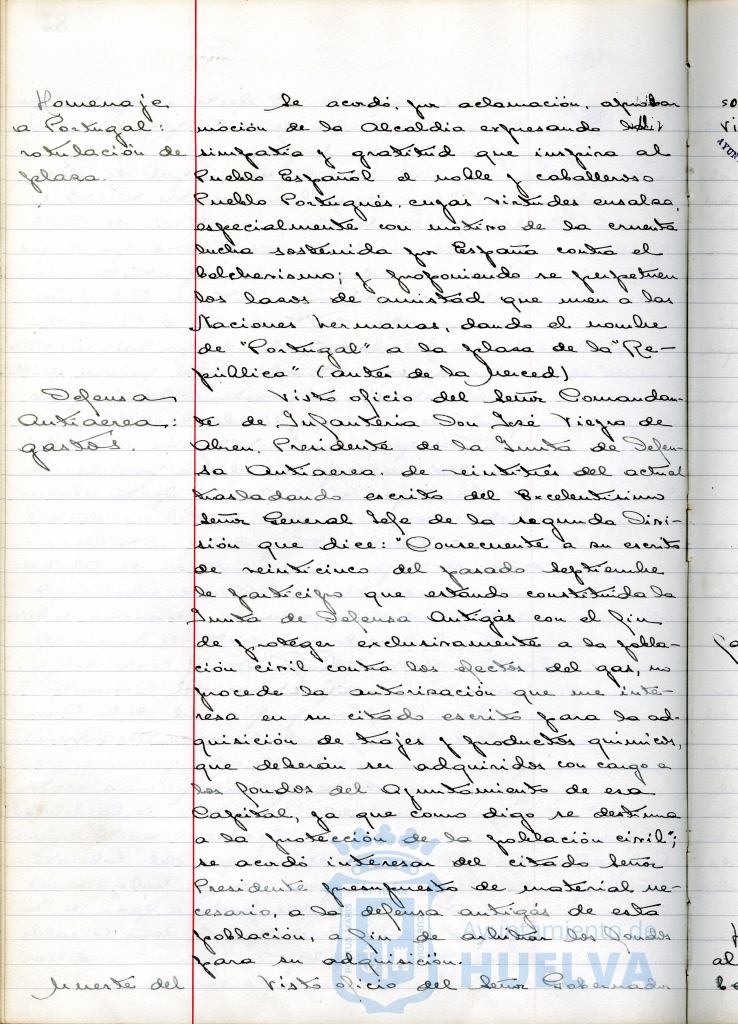 Homenaje
a Portugal:
rotulación de
plaza.
Se acordó, por aclamación, aprobar
moción de la Alcaldia expresando la
simpatia y gratitud que inspira al
Pueblo Español el noble y caballeroso
Pueblo Portugués, cuyas virtudes ensalza,
especialmente con motivo de la cruenta
lucha sostenida por España contra el
bolchevismo; y proponiendo se perpetuen
los lazos de amistad que unen a las
Naciones hermanas, dando el nombre
de "Portugal" a la plaza de la "Re-
pública" (antes de la Merced)
Defensa
Antiaerea:
gastos.
Visto oficio del Señor Comandan-
te de Infanteria Don José Viegra de
Abreu, Presidente de la Junta de Defen-
sa Antiaerea, de veintitres del actual
trasladando escrito del Excelentisimo
Señor General Jefe de la segunda Divi-
sión que dice: "Consecuente a su escrito
de veinticinco del pasado Septiembre
le participo que estando constituida la
Junta de Defensa Antigás con el fin
de proteger exclusivamente a la pobla-
ción civil contra los efectos del gas, no
procede la autorización que me inte-
resa en su citado escrito para la ad-
quisición de trajes y productos quimicos,
que deberán ser adquiridos con cargo a
los fondos del Ayuntamiento de esa
Capital, ya que como digo se destina
a la protección de la población civil";
se acordó interesar del citado Señor
Presidente presupuesto de material ne-
cesario, a la defensa antigás de esta
población, a fin de arbitrar los fondos
para su adquisición.
Muerte del
Visto oficio del Señor Gobernador
Ayuntamiento de
HUELVA